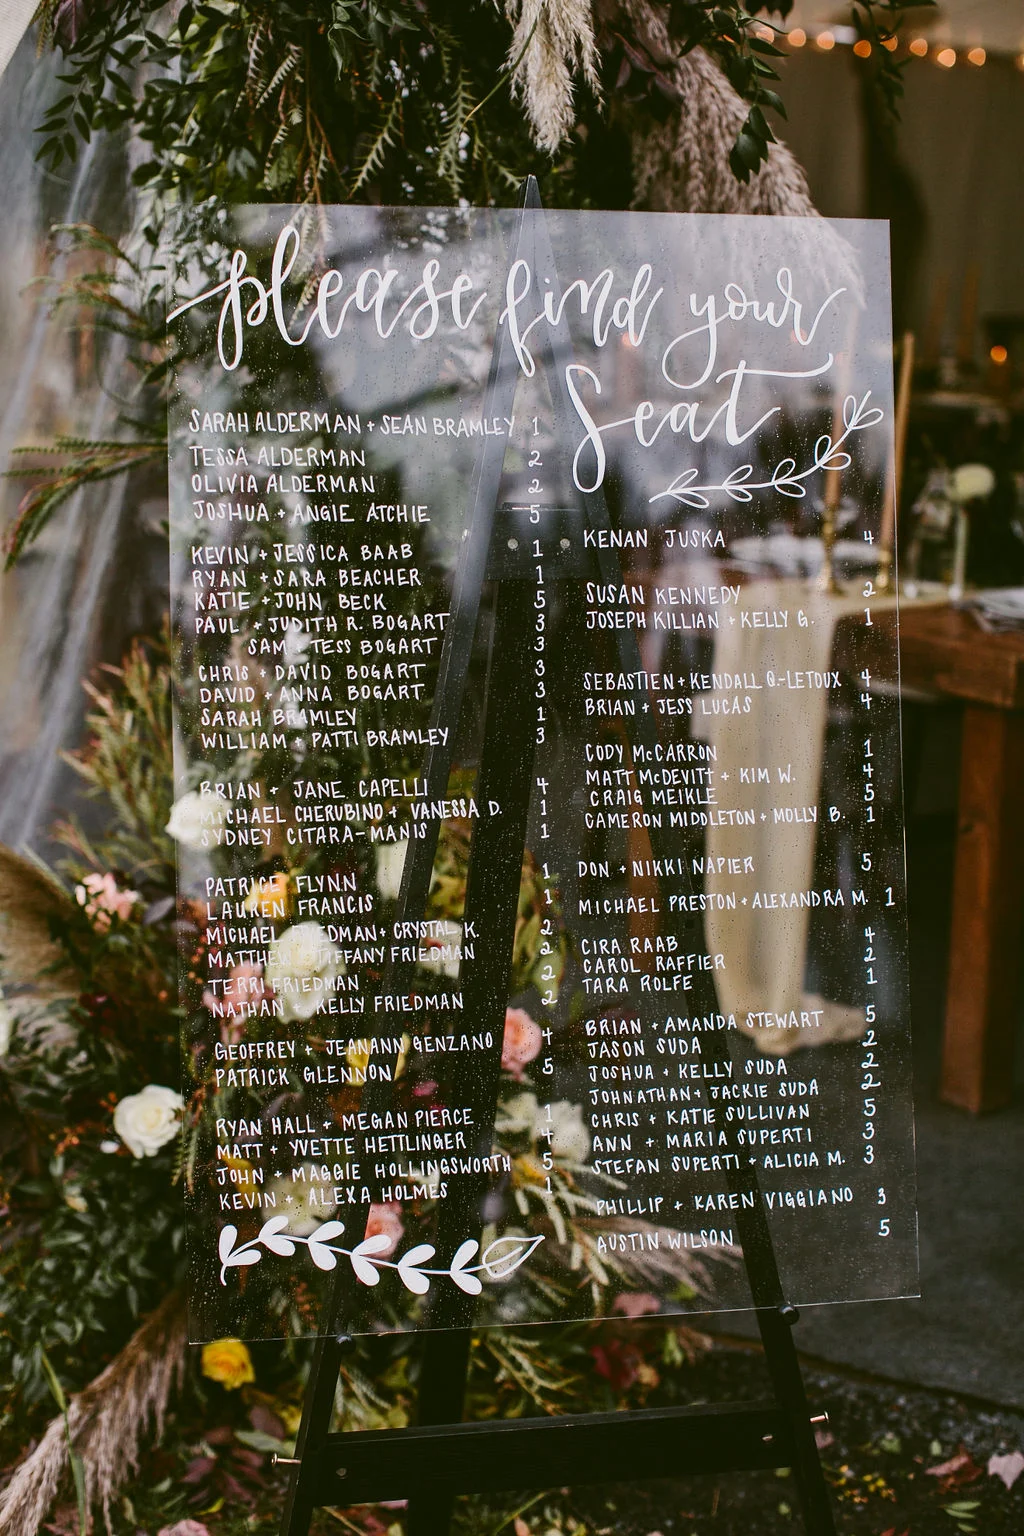 please find your
Seat
SARAH ALDERMAN + SEAN BRAMLEY 1
TESSA ALDERMAN 2
OLIVIA ALDERMAN 2
JOSHUA + ANGIE ATCHIE 5
KEVIN + JESSICA BAAB 1
RYAN + SARA BEACHER 1
KATIE + JOHN BECK 5
PAUL + JUDITH R. BOGART 3
SAM + TESS BOGART 3
CHRIS + DAVID BOGART 3
DAVID + ANNA BOGART 3
SARAH BRAMLEY 1
WILLIAM + PATTI BRAMLEY 3
BRIAN + JANE CAPELLI 4
MICHAEL CHERUBINO + VANESSA D. 1
SYDNEY CITARA-MANIS 1
PATRICE FLYNN 1
LAUREN FRANCIS 1
MICHAEL FRIEDMAN + CRYSTAL K. 2
MATTHEW + TIFFANY FRIEDMAN 2
TERRI FRIEDMAN 2
NATHAN + KELLY FRIEDMAN 2
GEOFFREY + JEANANN GENZANO 4
PATRICK GLENNON 5
RYAN HALL + MEGAN PIERCE 1
MATT + YVETTE HETTLINGER 4
JOHN + MAGGIE HOLLINGSWORTH 5
KEVIN + ALEXA HOLMES 1
KENAN JUSKA 4
SUSAN KENNEDY 2
JOSEPH KILLIAN + KELLY G. 1
SEBASTIEN + KENDALL Q.-LETOUX 4
BRIAN + JESS LUCAS 4
CODY McCARRON 1
MATT McDEVITT + KIM W. 4
CRAIG MEIKLE 5
CAMERON MIDDLETON + MOLLY B. 1
DON + NIKKI NAPIER 5
MICHAEL PRESTON + ALEXANDRA M. 1
CIRA RAAB 4
CAROL RAFFIER 2
TARA ROLFE 1
BRIAN + AMANDA STEWART 5
JASON SUDA 2
JOSHUA + KELLY SUDA 2
JOHNATHAN + JACKIE SUDA 2
CHRIS + KATIE SULLIVAN 5
ANN + MARIA SUPERTI 3
STEFAN SUPERTI + ALICIA M. 3
PHILLIP + KAREN VIGGIANO 3
AUSTIN WILSON 5